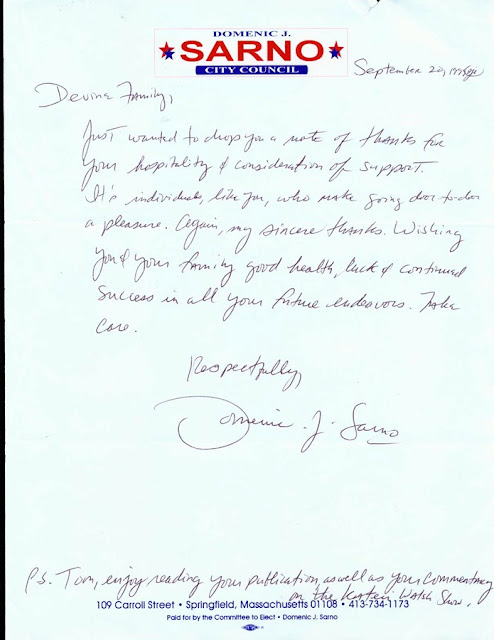 DOMENIC J.
SARNO
CITY COUNCIL
September 20, 1995
Devine Family,
Just wanted to drop you a note of thanks for
your hospitality & consideration of support.
It's individuals, like you, who make going door-to-door
a pleasure. Again, my sincere thanks. Wishing
you & your family good health, luck & continued
success in all your future endeavors. Take
care.
Respectfully,
Domenic J. Sarno
P.S. Tom, enjoy reading your publication, as well as your commentary
on the Walsh Show.
109 Carroll Street • Springfield, Massachusetts 01108 • 413-734-1173
Paid for by the Committee to Elect • Domenic J. Sarno